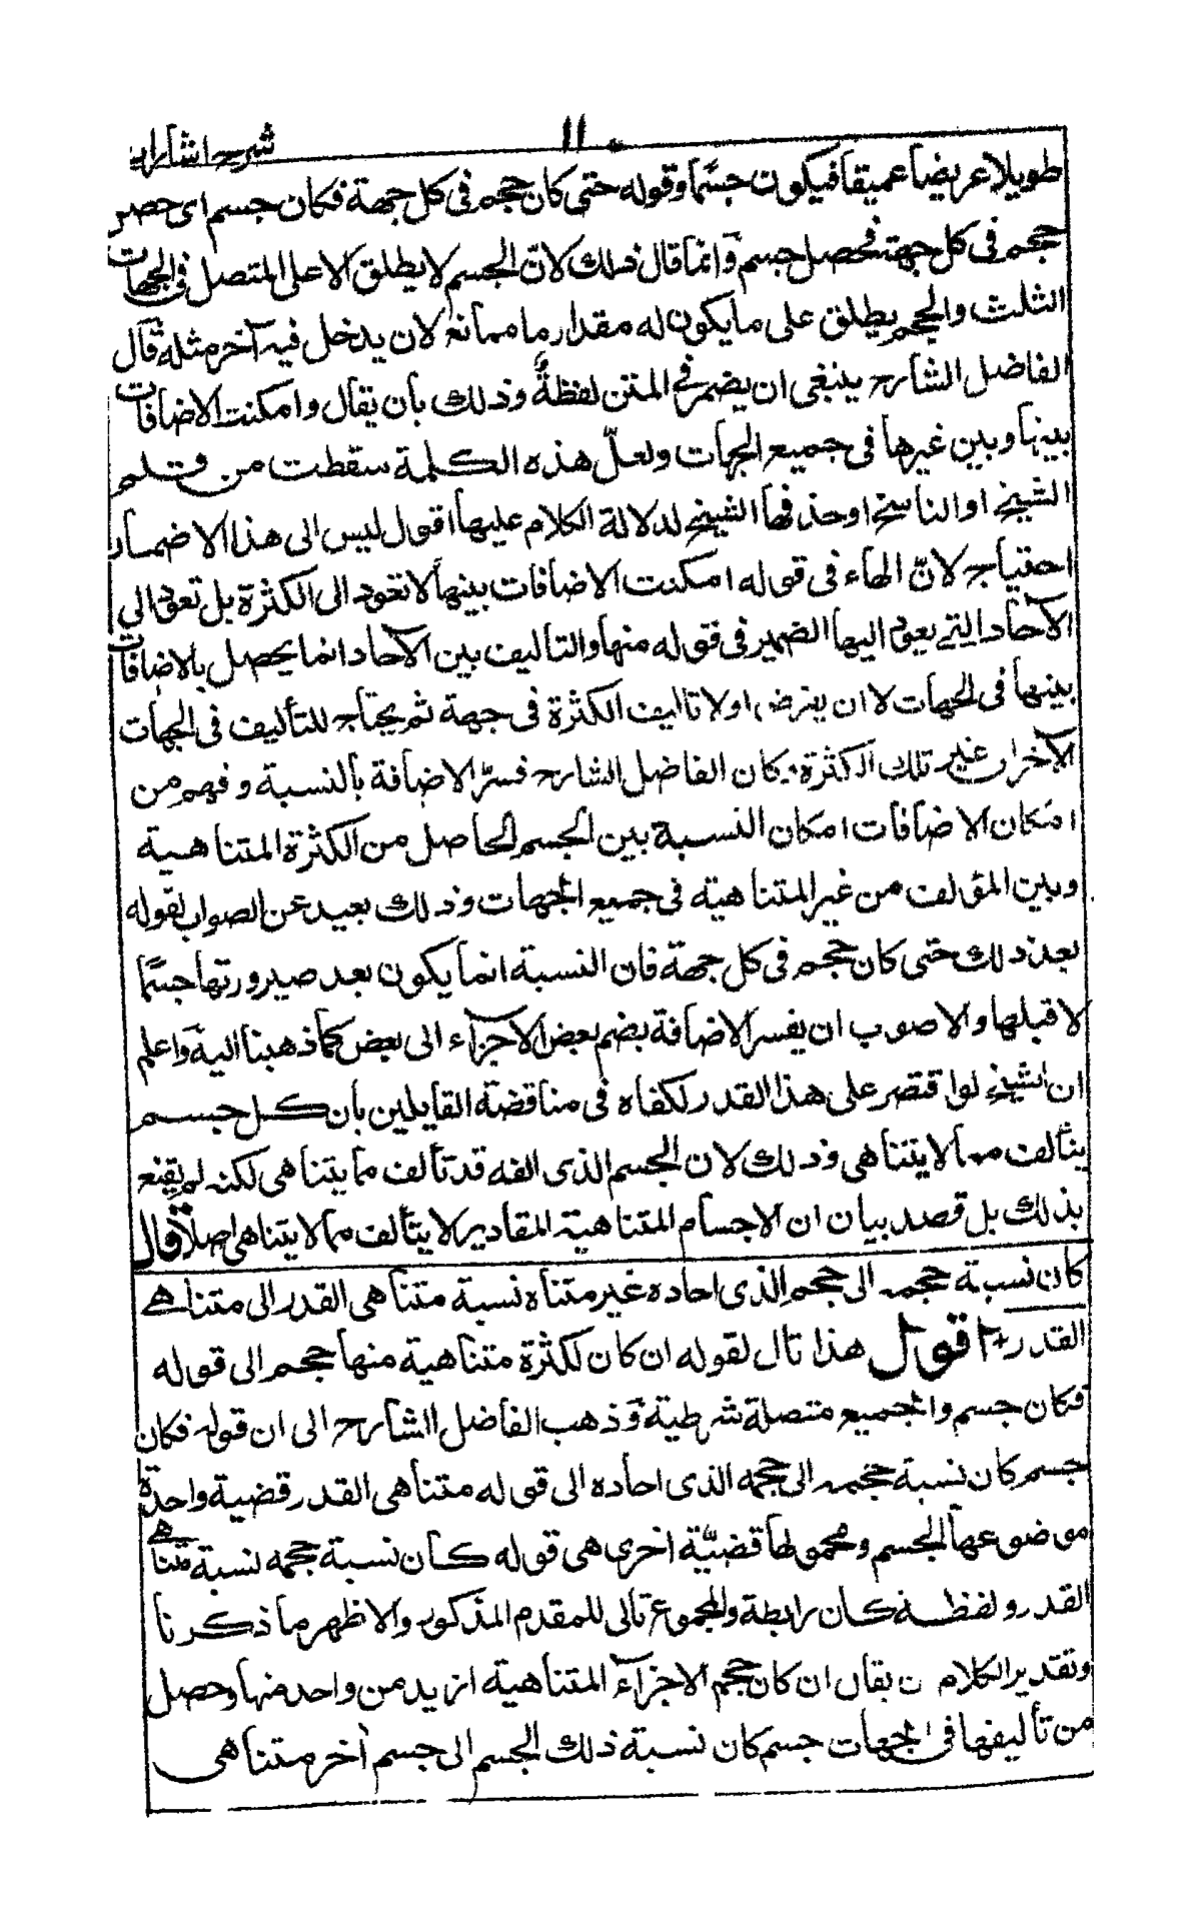 شرح اشارات
١١
طويلا عريضا عميقا فيكون جسما وقوله حتى كان حجم فى كل جهة فكان جسم اى حصر
حجم فى كل جهة فحصل جسم وانما قال ذلك لانّ الجسم لا يطلق الا على المتصل فى الجهات
الثلث والحجم يطلق على ما يكون له مقدار ما ممانع لان يدخل فيه آخر مثله قال
الفاضل الشارح ينبغى ان يضمر فى المتن لفظةٌ وذلك بان يقال وامكنت الاضافات
بينها وبين غيرها فى جميع الجهات ولعلّ هذه الكلمة سقطت من قلم
الشيخ او الناسخ او حذفها الشيخ لدلالة الكلام عليها اقول ليس الى هذا الاضمار
احتياج لانّ الهاء فى قوله امكنت الاضافات بينها لا تعود الى الكثرة بل تعود الى
الآحاد التى يعود اليها الضمير فى قوله منها والتاليف بين الآحاد انما يحصل بالاضافات
بينها فى الجهات لا ان يفرض اولا تاليف الكثرة فى جهة ثم يحتاج للتأليف فى الجهات
الآخر الى غير تلك الكثرة وكان الفاضل الشارح فسّر الاضافة بالنسبة وفهم من
امكان الاضافات امكان النسبة بين الجسم الحاصل من الكثرة المتناهية
وبين المؤلف من غير المتناهية فى جميع الجهات وذلك بعيد عن الصواب لقوله
بعد ذلك حتى كان حجم فى كل جهة فان النسبة انما يكون بعد صيرورتها جسمًا
لا قبلها والاصوب ان يفسر الاضافة بضم بعض الاجزآء الى بعض كما ذهبنا اليه واعلم
ان الشيخ لو اقتصر على هذا القدر لكفاه فى مناقضة القايلين بان كل جسم
يتألف مما لا يتناهى وذلك لان الجسم الذى الفه قد تألف مما يتناهى لكنه لم يقنع
بذلك بل قصد بيان ان الاجسام المتناهية المقادير لا يتألف مما لا يتناهى اصلا قال
كان نسبة حجمه الى حجم الذى احاده غير متناه نسبة متناهى القدر الى متناهى
القدر اقول هذا تال لقوله ان كان لكثرة متناهية منها حجم الى قوله
فكان جسم والجميع متصلة شرطية وذهب الفاضل الشارح الى ان قوله فكان
جسم كان نسبة حجمه الى حجمه الذى احاده الى قوله متناهى القدر قضية واحدة
موضوعها الجسم ومحمولها قضيّة اخرى هى قوله كان نسبة حجمه نسبة متناهى
القدر ولفظة كان رابطة والمجموع تالى للمقدم المذكور والاظهر ما ذكرنا
وتقدير الكلام ان يقال ان كان حجم الاجزآء المتناهية ازيد من واحد منها وحصل
من تأليفها فى الجهات جسم كان نسبة ذلك الجسم الى جسم آخر متناهى